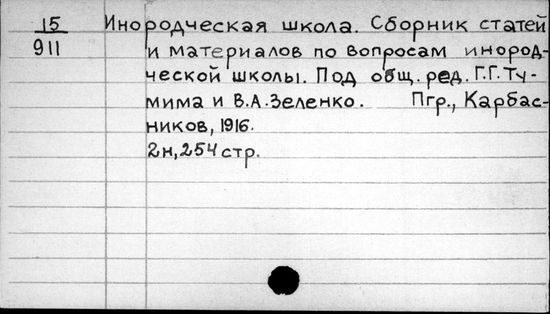 15 Инородческая школа. Сборник статей
911 и материалов по вопросам инород-
ческой школы. Под общ. ред. Г.Г.Ту-
мима и В.А.Зеленко. Пгр., Карбас-
ников, 1916.
2н, 254 стр.